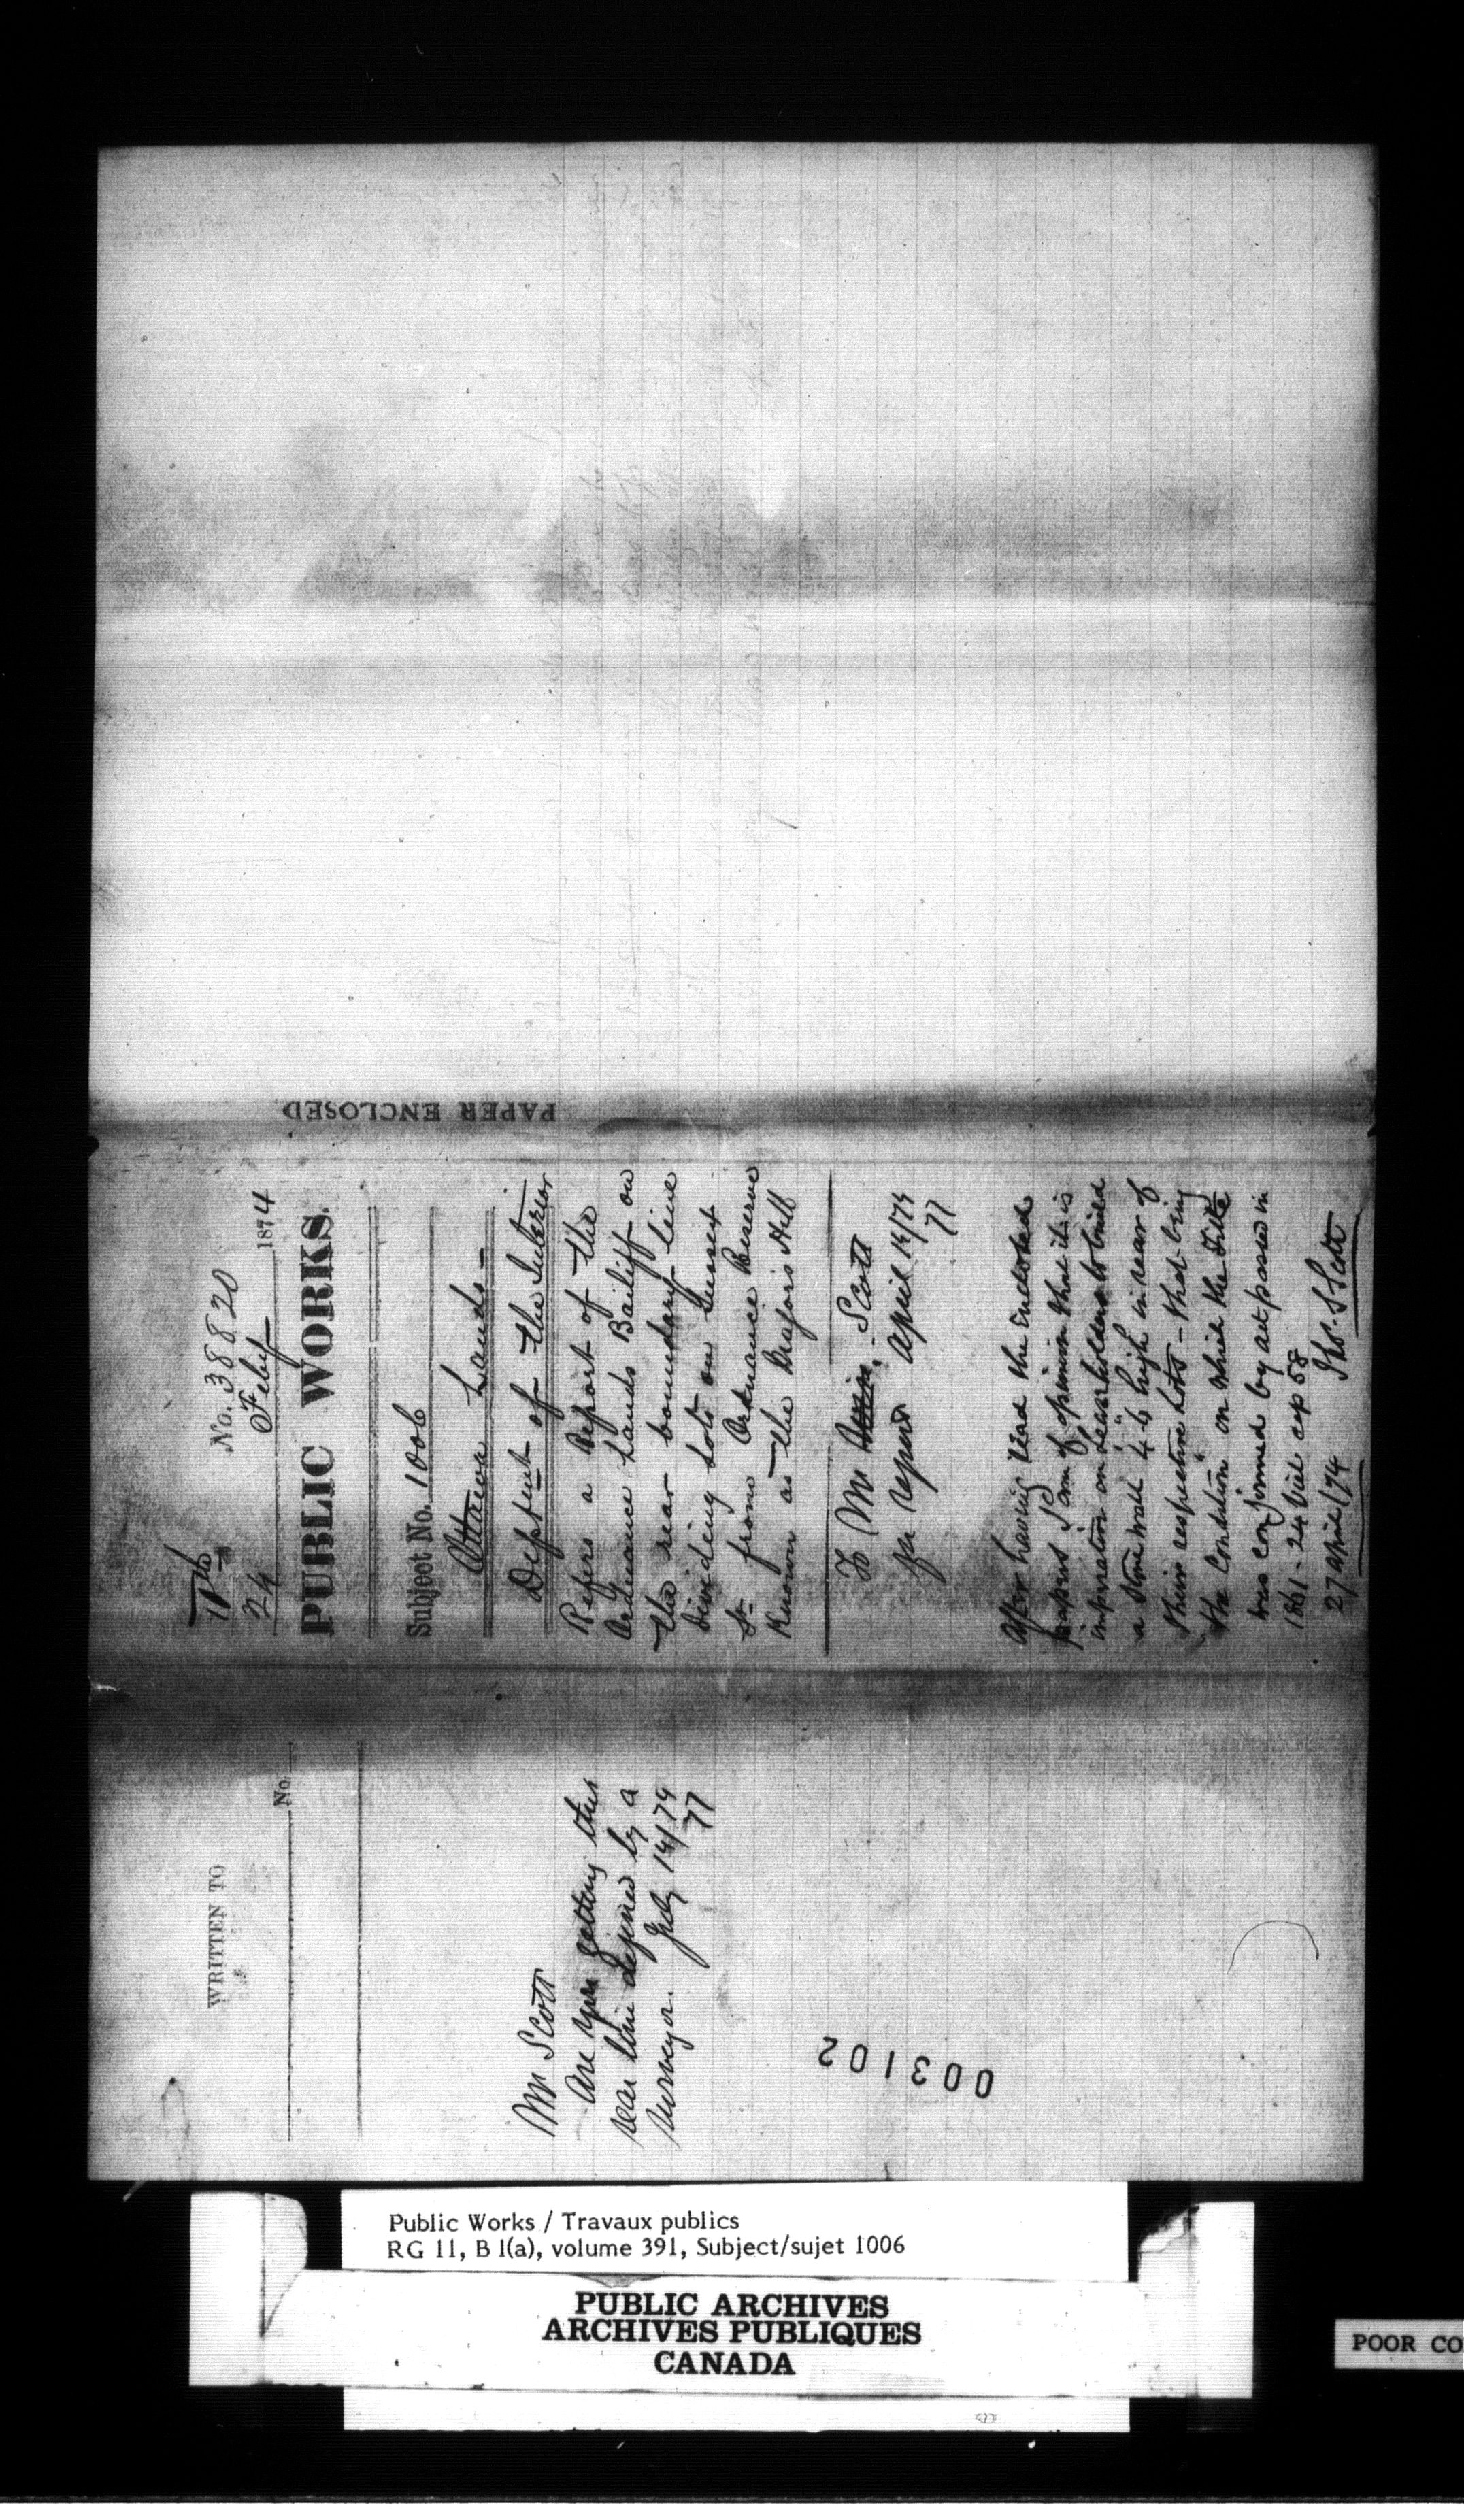 No. 38820
24 Feby 1874
PUBLIC WORKS.
Subject No. 1006
Ottawa Lands -
Deptmt of the Interior
Refers a Report of the
Ordnance Lands Bailiff on
the rear boundary line
dividing lots on Sussex
St from Ordnance Reserve
Known as the Majors Hill
To Mr Scott
for report April 14/74
PAPER ENCLOSED
After having read the Enclosed
papers I am of opinion that it is
imperative on Leaseholders to build
a Stone wall 4.6 high in rear of
their respective Lots - that being
the Condition on which the Title
was confirmed by act passed in
1861 - 24 Vict cap 58
27 April /74 Thos. Scott
WRITTEN TO
No.
Mr Scott
Are you getting this
rear line defined by a
surveyor. July 14/74
003102
Public Works / Travaux publics
RG 11, B 1(a), volume 391, Subject/sujet 1006
PUBLIC ARCHIVES
ARCHIVES PUBLIQUES
CANADA
POOR CO